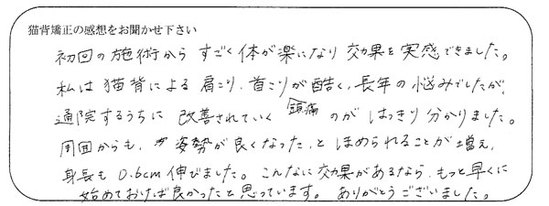 猫背矯正の感想をお聞かせ下さい
初回の施術から すごく体が楽になり 効果を実感できました。
私は猫背による肩こり、首こりが酷く、長年の悩みでしたが、
頭痛
通院するうちに 改善されていく のが はっきり分かりました。
周囲からも、姿勢が良くなった、とほめられることが増え、
身長も 0.6cm 伸びました。こんなに効果があるなら、もっと早くに
始めておけば良かったと思っています。ありがとうございました。